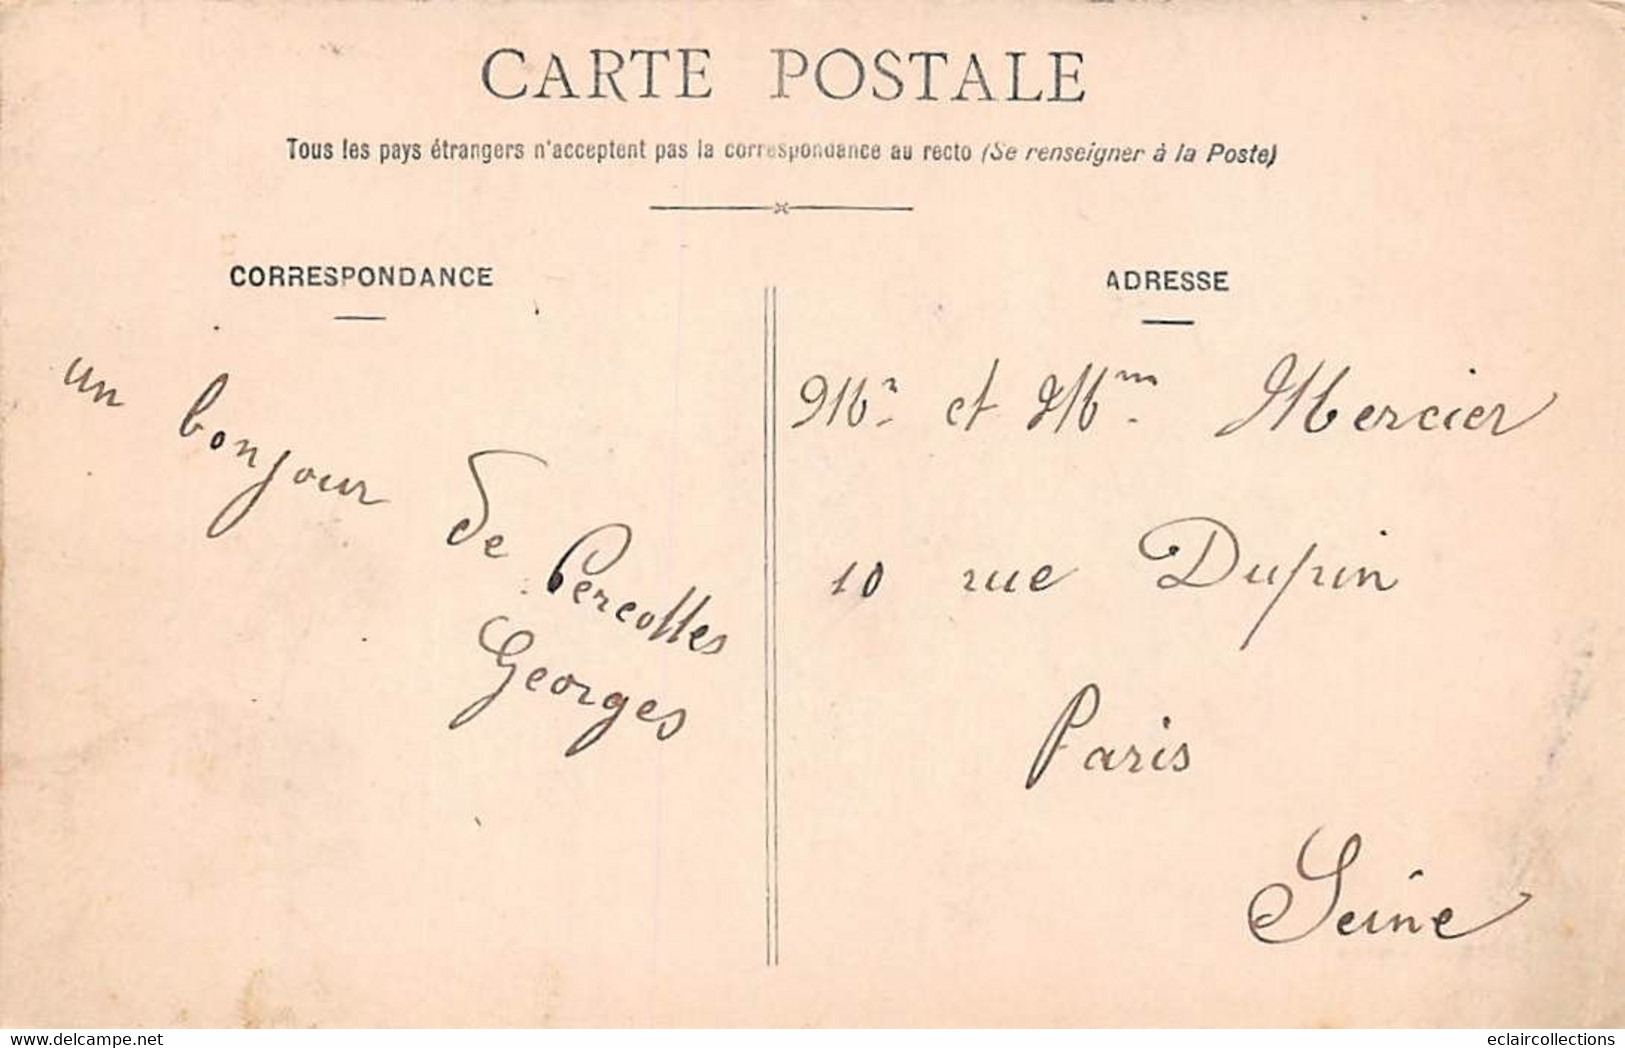 CARTE POSTALE
Tous les pays étrangers n'acceptent pas la correspondance au recto (Se renseigner à la Poste)
CORRESPONDANCE
un bonjour de Cercottes
Georges
ADRESSE
Mr et Mme Mercier
10 rue Dupin
Paris
Seine
www.delcampe.net
eclaircollections